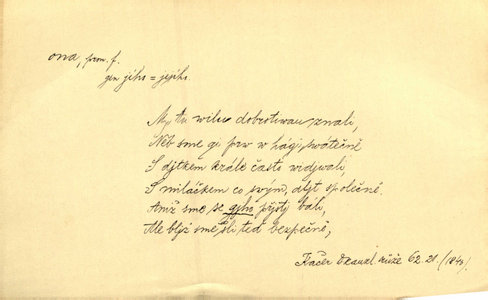 ona, pron. f.
gen jího = jejího.
My tu wílu dobrotiwau znali,
Neb sme gi prw w hági swátečně
S djtkem krále často wjdjwali,
S miláčkem co swým, dljt společně.
Aniž sme se gjho přjsty báli,
Ale bljž sme šli teď bezpečně;
Kačer Okauzl. růže 62. 21. (1840)